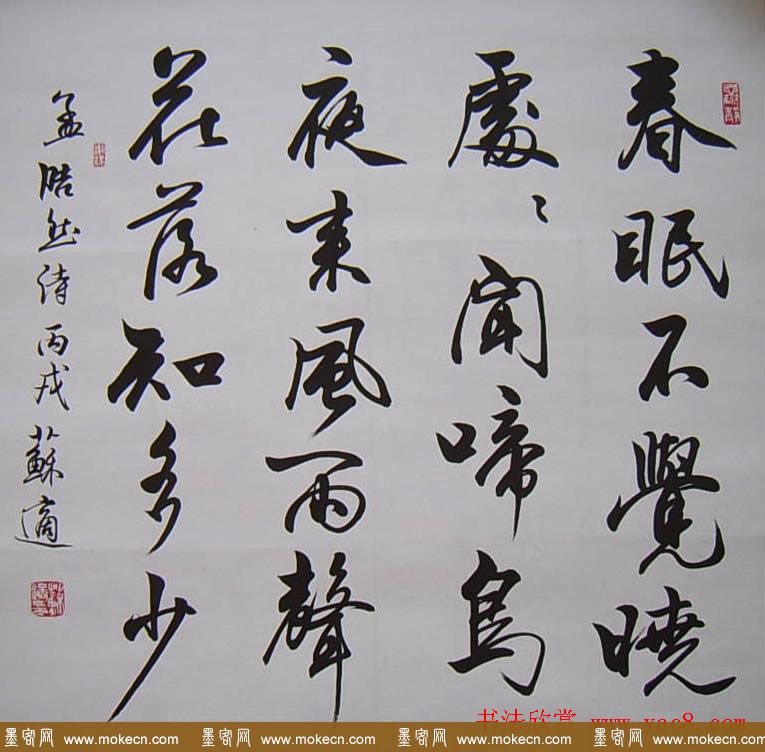 春眠不覺曉
處〻聞啼鳥
夜来風雨聲
花落知多少
孟浩然诗丙戌蘇適
书法欣赏 www.yac8.com
墨客网 www.mokecn.com 墨客网 www.mokecn.com 墨客网 www.mokecn.com 墨客网 www.mokecn.com